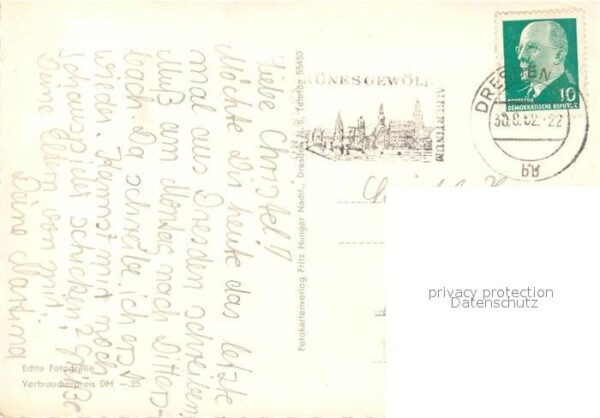 Liebe Christel!
Möchte Dir heute das letzte
mal aus Dresden schreiben.
Muß am Montag nach Witters-
bach. Da schreibe ich erst
wieder. Kannst mir noch
Schauspieler schicken! Grüße
Deine Eltern von mir!
Deine Martina
Echte Fotografie
Verbraucherpreis DM —,25
Fotokartenverlag Fritz Hunger Nachf., Dresden N 6, Telefon 55453
GRÜNES GEWÖLBE
ALBERTINUM
DRESDEN
30.8.62.-22
bA
10
DEUTSCHE
DEMOKRATISCHE REPUBLIK
privacy protection
Datenschutz